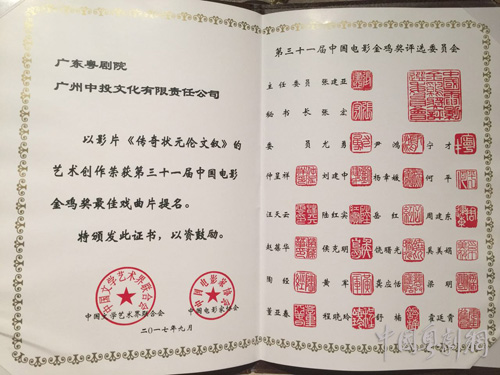 广东粤剧院
广州中投文化有限责任公司
以影片《传奇状元伦文叙》的
艺术创作荣获第三十一届中国电影
金鸡奖最佳戏曲片提名。
特颁发此证书，以资鼓励。
中国文学艺术界联合会
中国电影家协会
中国文学艺术界联合会 中国电影家协会
二〇一七年九月
第三十一届中国电影金鸡奖评选委员会
主任委员 张建亚
秘书长 张宏
委员 尤勇 尹鸿 宁才
仲呈祥 刘建中 杨幸媛 何平
汪天云 陆红实 岳红 周建东
赵葆华 侯克明 饶曙光 奚美娟
陶经 黄军 龚应恬 梁明
董亚春 程晓玲 舒楠 霍廷霄
中国粤剧网